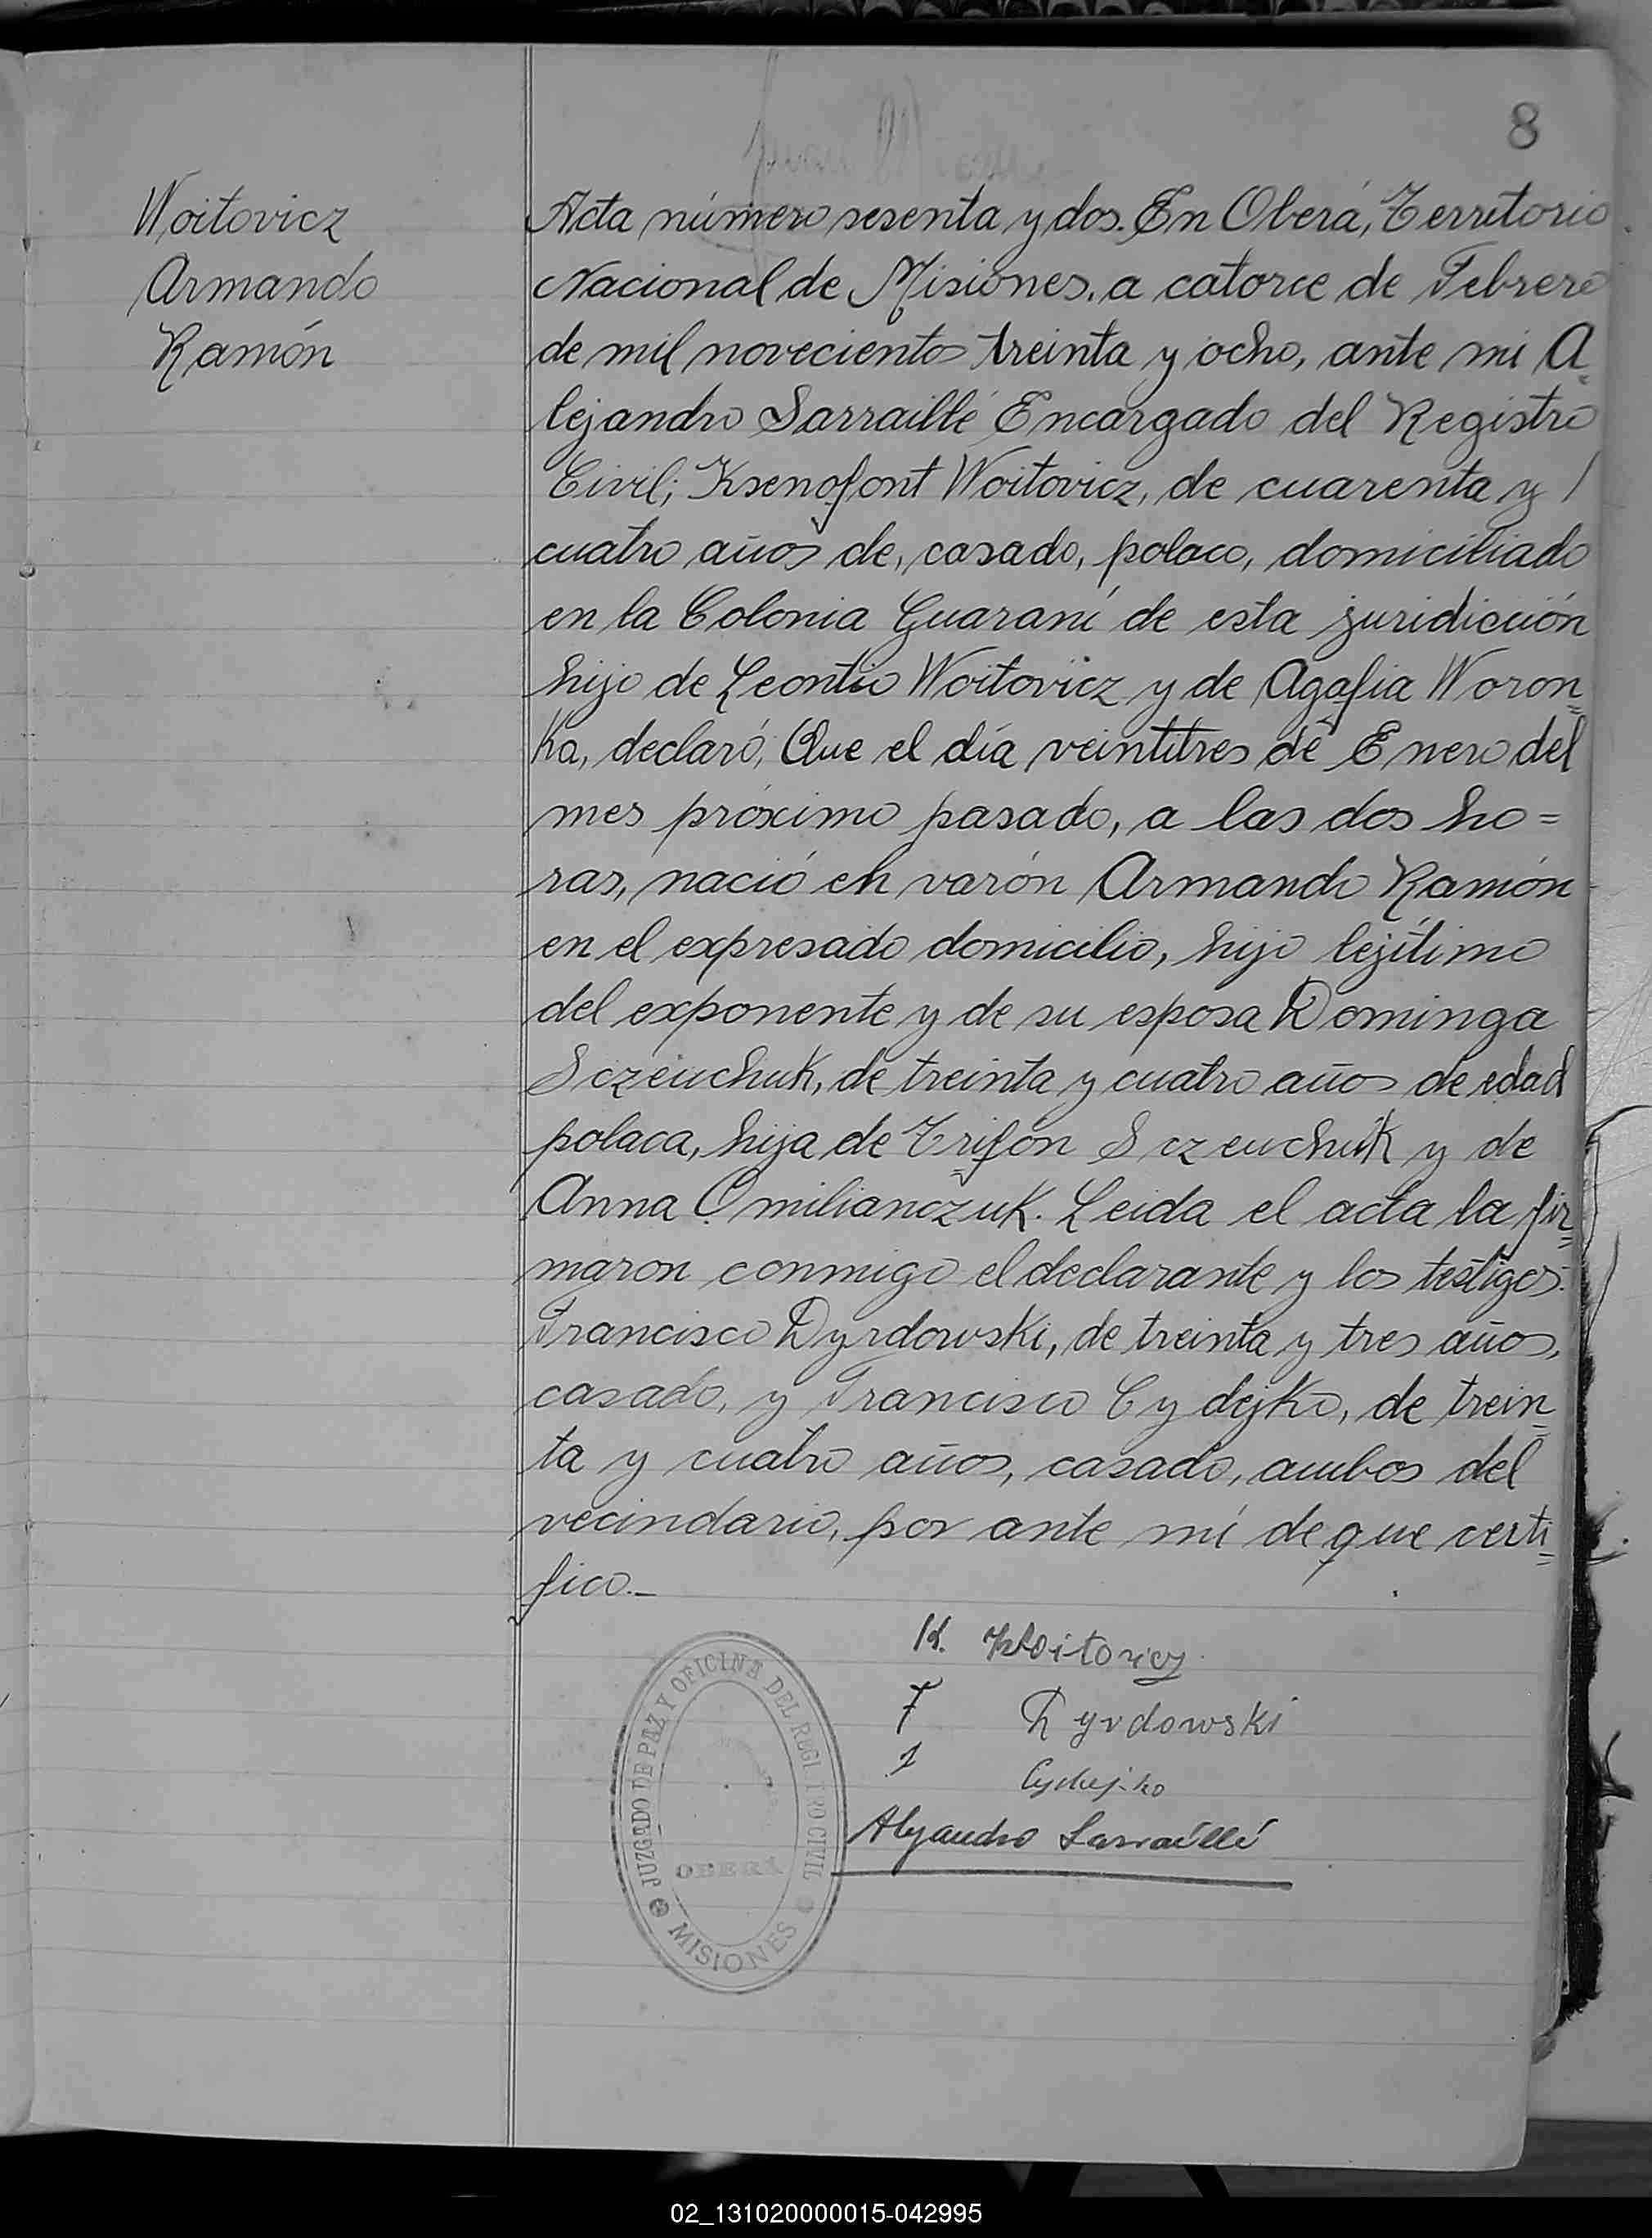 8
Woitovicz
Armando
Ramón
Acta número sesenta y dos. En Oberá, Territorio
Nacional de Misiones, a catorce de Febrero
de mil noveciento treinta y ocho, ante mi A
lejandro Sarraillé Encargado del Registro
Civil; Ksenofont Woitovicz, de cuarenta y /
cuatro años de, casado, polaco, domiciliado
en la Colonia Guaraní de esta juridicción
hijo de Leontio Woitovicz y de Agafia Woron=
ka, declaró; Que el día veintitres de Enero del
mes próximo pasado, a las dos ho=
ras, nació en varón Armando Ramón
en el expresado domicilio, hijo lejítimo
del exponente y de su esposa Dominga
Sczeuchuk, de treinta y cuatro años de edad
polaca, hija de Trifón Sczeuchuk y de
Anna Omilianczuk. Leida el acta la fir=
maron conmigo el declarante y los testigos:
Francisco Dyrdowski, de treinta y tres años,
casado, y Francisco Cydejko, de trein=
ta y cuatro años, casado, ambos del
vecindario, por ante mí de que certi=
fico._
K. Woitovicz
F Dyrdowski
Cydejko
Alejandro Sarraillé
JUZGADO DE PAZ Y OFICINA DEL REGISTRO CIVIL
OBERA
MISIONES
02_131020000015-042995